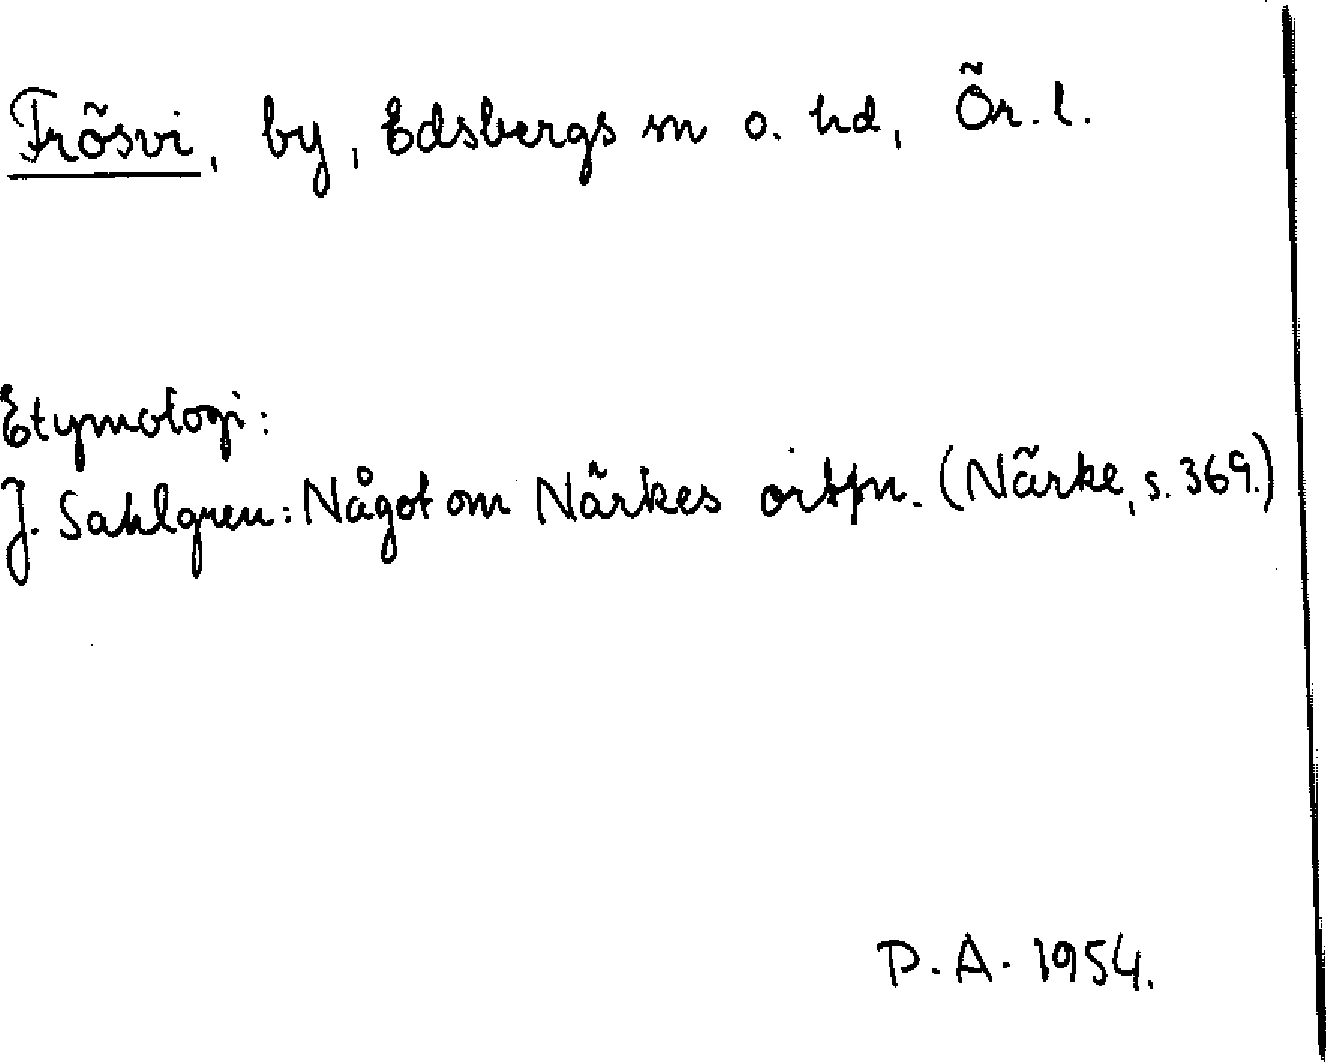 Frösvi, by, Edsbergs sn o. hd, Ör. l.
Etymologi:
J. Sahlgren: Något om Närkes ortsn. (Närke, s. 369.)
P.A. 1954.